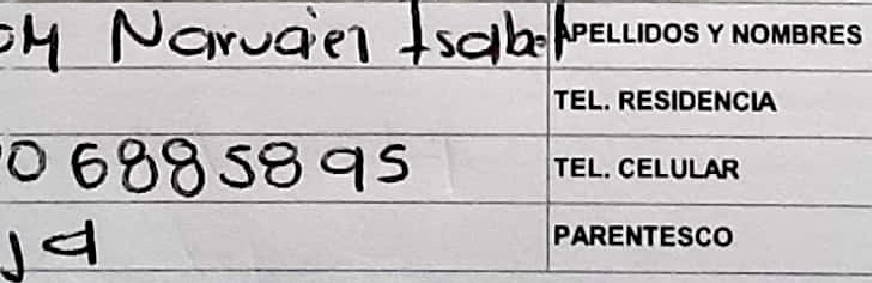 oy Narváez Isabel APELLIDOS Y NOMBRES
TEL. RESIDENCIA
06885895 TEL. CELULAR
ja PARENTESCO